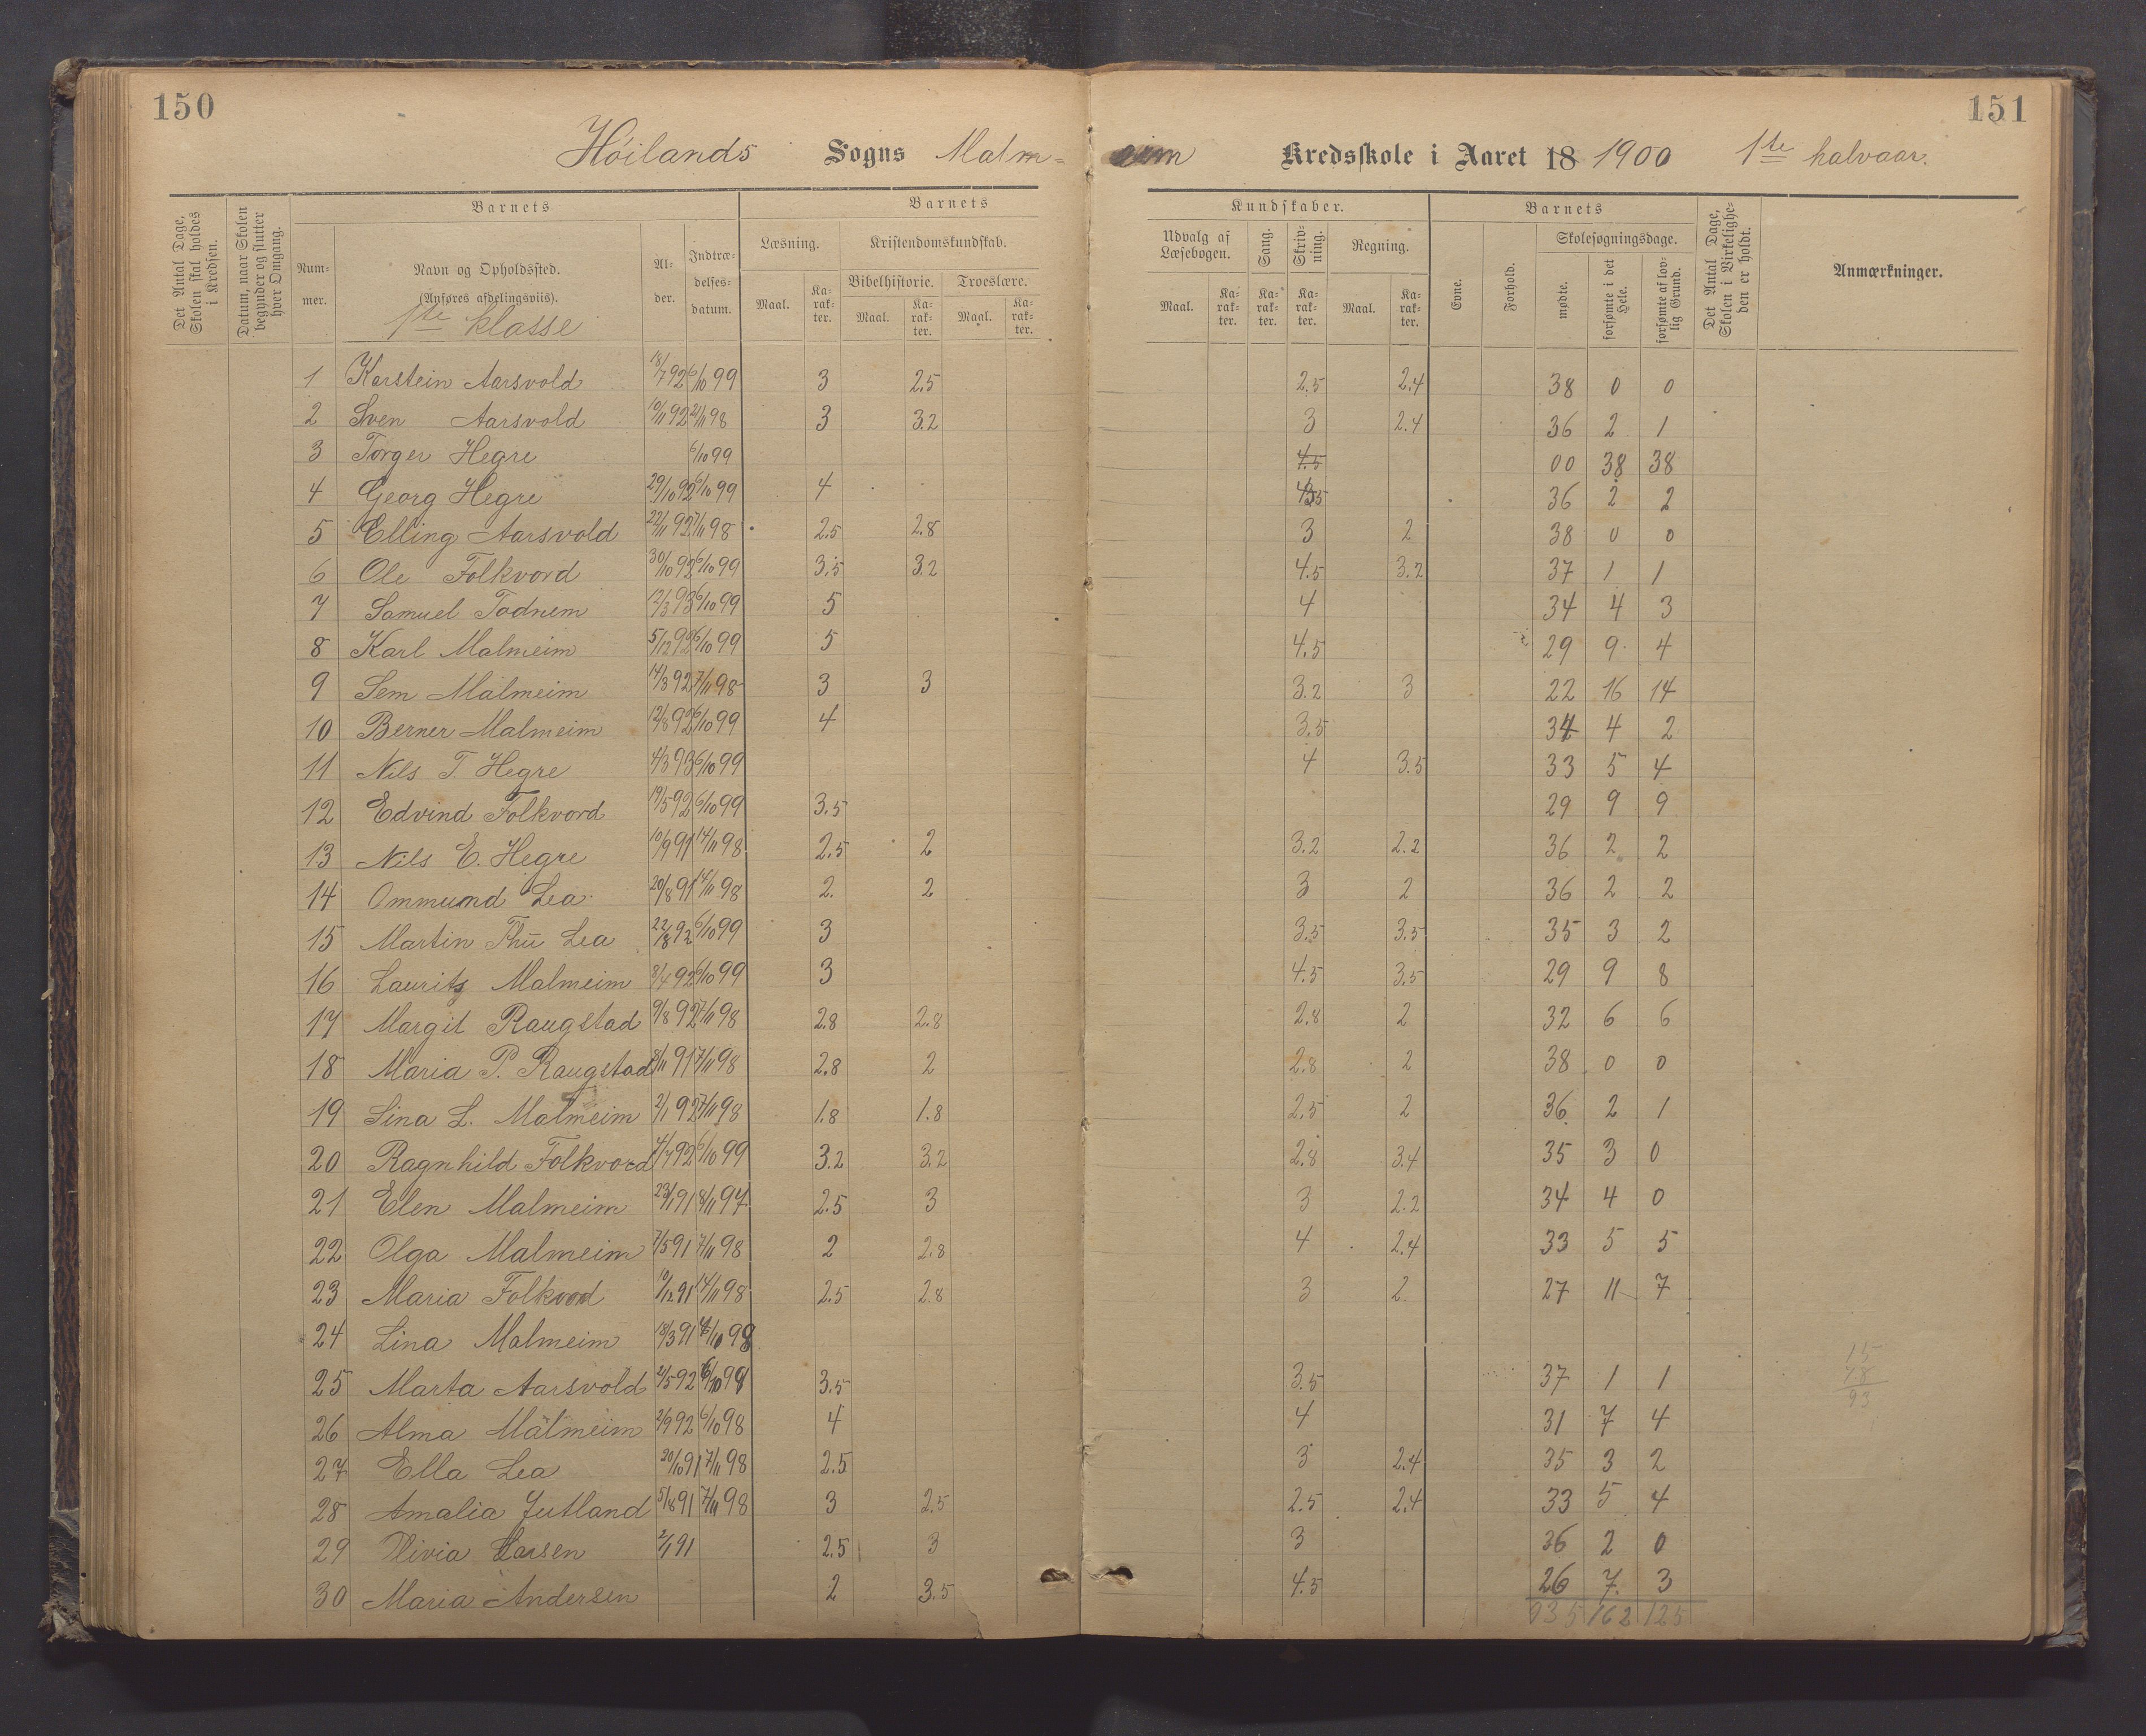 150
151
Høilands Sogns Malm= eim Kredsskole i Aaret 18 1900 1ste halvaar.
Det Antal Dage, Skolen skal holdes i Kredsen.
Datum, naar Skolen begynder og slutter hver Omgang.
Barnets
Nummer.
Navn og Opholdssted.
(Anføres afdelingsviis).
1ste klasse
Alder.
Indtrædelsesdatum.
Barnets
Kundskaber.
Læsning.
Maal.
Karakter.
Kristendomskundskab.
Bibelhistorie.
Maal.
Karakter.
Troeslære.
Maal.
Karakter.
Udvalg af Læsebogen.
Maal.
Karakter.
Sang.
Karakter.
Skrivning.
Karakter.
Regning.
Maal.
Karakter.
Barnets
Evne.
Forhold.
Skolesøgningsdage.
mødte.
forsømte i det Hele.
forsømte af lovlig Grund.
Det Antal Dage, Skolen i Virkeligheden er holdt.
Anmærkninger.
1 Karstein Aarsvold 18/7 92 6/10 99 3 2.5 2.5 2.4 38 0 0
2 Sven Aarsvold 10/11 92 21/11 98 3 3.2 3 2.4 36 2 1
3 Torger Hegre 6/10 99 4.5 00 38 38
4 Georg Hegre 29/10 92 6/10 99 4 36 2 2
5 Elling Aarsvold 22/11 92 7/11 98 2.5 2.8 3 2 38 0 0
6 Ole Folkvord 30/10 92 6/10 99 3.5 3.2 4.5 3.2 37 1 1
7 Samuel Todnem 12/3 93 6/10 99 5 4 34 4 3
8 Karl Malmeim 5/12 92 6/10 99 5 4.5 29 9 4
9 Sem Malmeim 14/3 92 7/11 98 3 3 3.2 3 22 16 14
10 Berner Malmeim 12/8 92 6/10 99 4 3.5 34 4 2
11 Nils T Hegre 4/3 93 6/10 99 4 3.5 33 5 4
12 Edvind Folkvord 19/5 92 6/10 99 3.5 29 9 9
13 Nils E. Hegre 10/9 91 14/11 98 2.5 2 3.2 2.2 36 2 2
14 Ommund Lea 20/8 91 14/11 98 2. 2 3 2 36 2 2
15 Martin Thu Lea 22/8 92 6/10 99 3 3.5 3.5 35 3 2
16 Laurits Malmeim 8/4 92 6/10 99 3 4.5 3.5 29 9 8
17 Margit Raugstad 9/8 92 7/11 98 2.8 2.8 2.8 2 32 6 6
18 Maria P. Raugstad 8/11 91 7/11 98 2.8 2 2.8 2 38 0 0
19 Sina L. Malmeim 2/1 92 7/11 98 1.8 1.8 2.5 2 36 2 1
20 Ragnhild Folkvord 4/7 92 6/10 99 3.2 3.2 2.8 3.4 35 3 0
21 Elen Malmeim 23/1 91 8/11 97 2.5 3 3 2.2 34 4 0
22 Olga Malmeim 7/5 91 7/11 98 2 2.8 4 2.4 33 5 5
23 Maria Folkvord 10/12 91 14/11 98 2.5 2.8 3 2. 27 11 7
24 Lina Malmeim 18/3 91
25 Marta Aarsvold 2/5 92 3.5 3.5 37 1 1
26 Alma Malmeim 2/9 92 6/10 98 4 4 31 7 4
27 Ella Lea 20/10 91 7/11 98 2.5 3 2.4 35 3 2
28 Amalia Jutland 5/8 91 7/11 98 3 2.5 2.5 2.4 33 5 4
29 Olivia Larsen 2/1 91 2.5 3 3 36 2 0
30 Maria Andersen 2 3.5 4.5 26 7 3
935 162 125
15
78
93